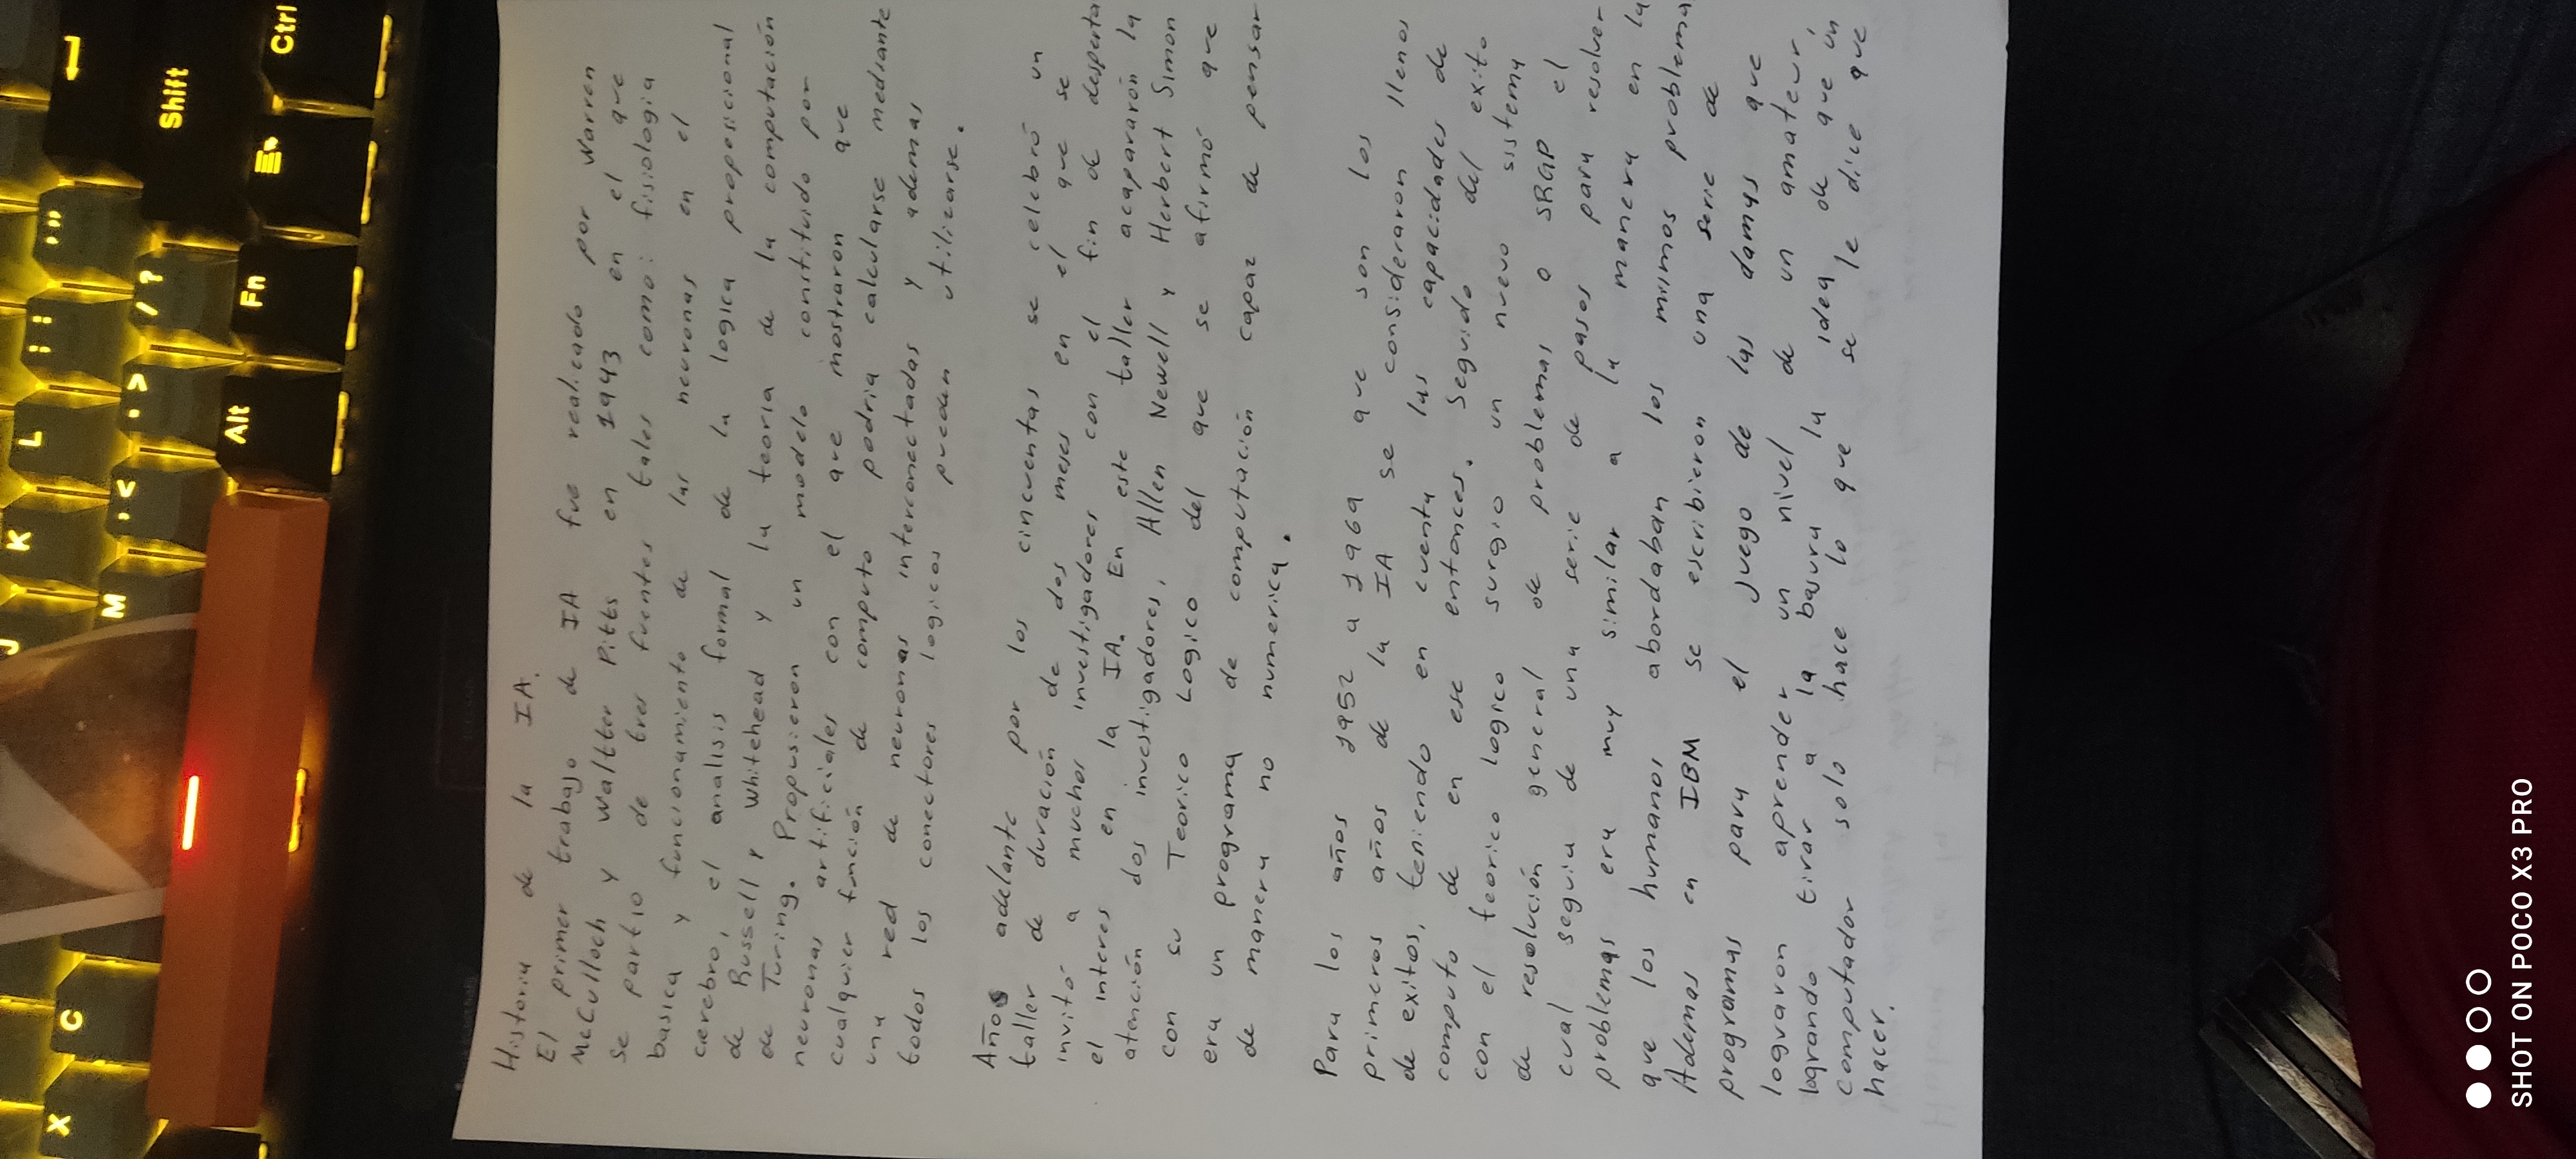 J K L ; : ' "
X C
M , < . > / ?
Shift
Alt Fn Ctrl
Historia de la IA.
El primer trabajo de IA fue realicado por Warren
McCulloch y Waltter Pitts en 1943 en el que
se partio de tres fuentes tales como: fisiologia
basica y funcionamiento de las neuronas en el
cerebro, el analisis formal de la logica proposicional
de Russell y Whitehead y la teoria de la computación
de Turing. Propusieron un modelo constituido por
neuronas artificiales con el que mostraron que
cualquier función de computo podria calcularse mediante
una red de neuronas interconectadas y ademas
todos los conectores logicos pueden utilizarse.
Años adelante por los cincuentas se celebró un
taller de duración de dos meses en el que se
invitó a muchos investigadores con el fin de desperta
el interes en la IA. En este taller acapararón la
atención dos investigadores, Allen Newell y Herbert Simon
con su Teorico Logico del que se afirmó que
era un programa de computación capaz de pensar
de manera no numerica.
Para los años 1952 a 1969 que son los
primeros años de la IA se consideraron llenos
de exitos, teniendo en cuenta las capacidades de
computo de en ese entonces. Seguido del exito
con el teorico logico surgio un nuevo sistema
de resolución general de problemas o SRGP el
cual seguia de una serie de pasos para resolver
problemas era muy similar a la manera en la
que los humanos abordaban los mismos problema
Ademas en IBM se escribieron una serie de
programas para el juego de las damas que
lograron aprender un nivel de un amateur,
logrando tirar a la basura la idea de que un
computador solo hace lo que se le dice que
hacer.
SHOT ON POCO X3 PRO